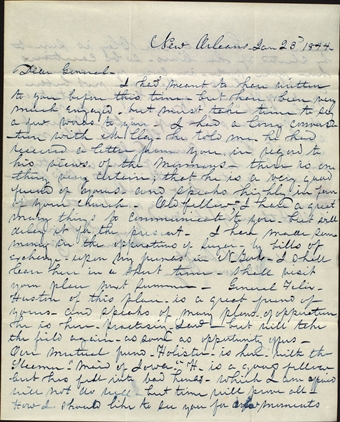 New Orleans Jan 23d 1844
Dear General—
I had meant to have written
to you before this time— but have been very
much engaged, but must take time to say
a few words to you— I had a long conversa
tion with Mr Clay— he told me he had
received a letter from you, in regard to
his views of the Mormons— there is one
thing very certain, that he is a very good
friend of yours and speaks highly in favor
of your church— Old fellow— I have a great
many things to communicate to you— but will
it for the present— I have made some
money on the operations of Sugar— by bills of
exchange upon my friends in N York— I shall
leave here in a short time— shall visit
your place next Summer— General Felix
Huston of this place is a great friend of
yours— and speaks of many plans of operation
he is here practising Law— but will take
the field again— as soon as opportunity offers—
Our mutual friend— Holister— is here with the
Steamer "Maid of Iowa" H— is a good fellow
but has fell into bad hands— which I am afraid
will not do well— but time will prove all—
How I should like to see you for moments